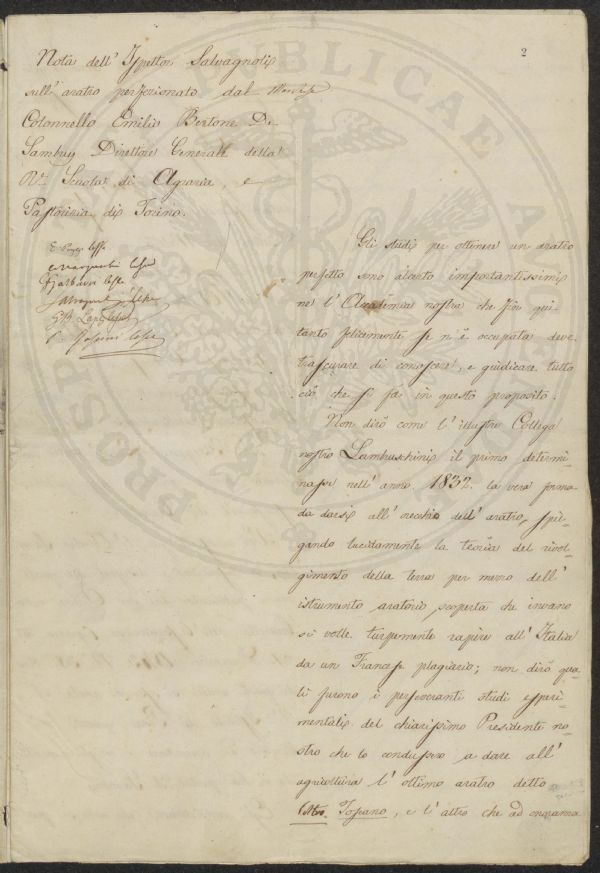 2
Nota dell' Ispettor Salvagnoli
sull' aratro perfezionato dal Marchese
Colonnello Emilio Bertone Di
Sambuy Direttore Generale della
Rª. Scuola di Agraria, e
Pastorizia di Torino.
Lesse
Gli studi per ottenere un aratro
perfetto sono di certo importantissimi
ne l'Accademia nostra che fin qui
tanto felicemente se n'è occupata deve
trascurare di conoscere, e giudicare tutto
ciò che si fa in questo proposito.
Non dirò come l'illustre Collega
nostro Lambruschini il primo determi-
nasse nell'anno 1832. la vera forma
da darsi all'orecchio dell'aratro, spie-
gando lucidamente la teoria del rivol-
gimento della terra per mezzo dell'
istrumento aratorio, scoperta che invano
si volle turpemente rapire all'Italia
da un Francese plagiario; non dirò qua-
li furono i perseveranti studi esperi-
mentali del chiarissimo Presidente no-
stro che lo condussero a dare all'
agricoltura l'ottimo aratro detto
Coltro Toscano, e l'altro che ad onoranza
PUBLICAE
PROSP